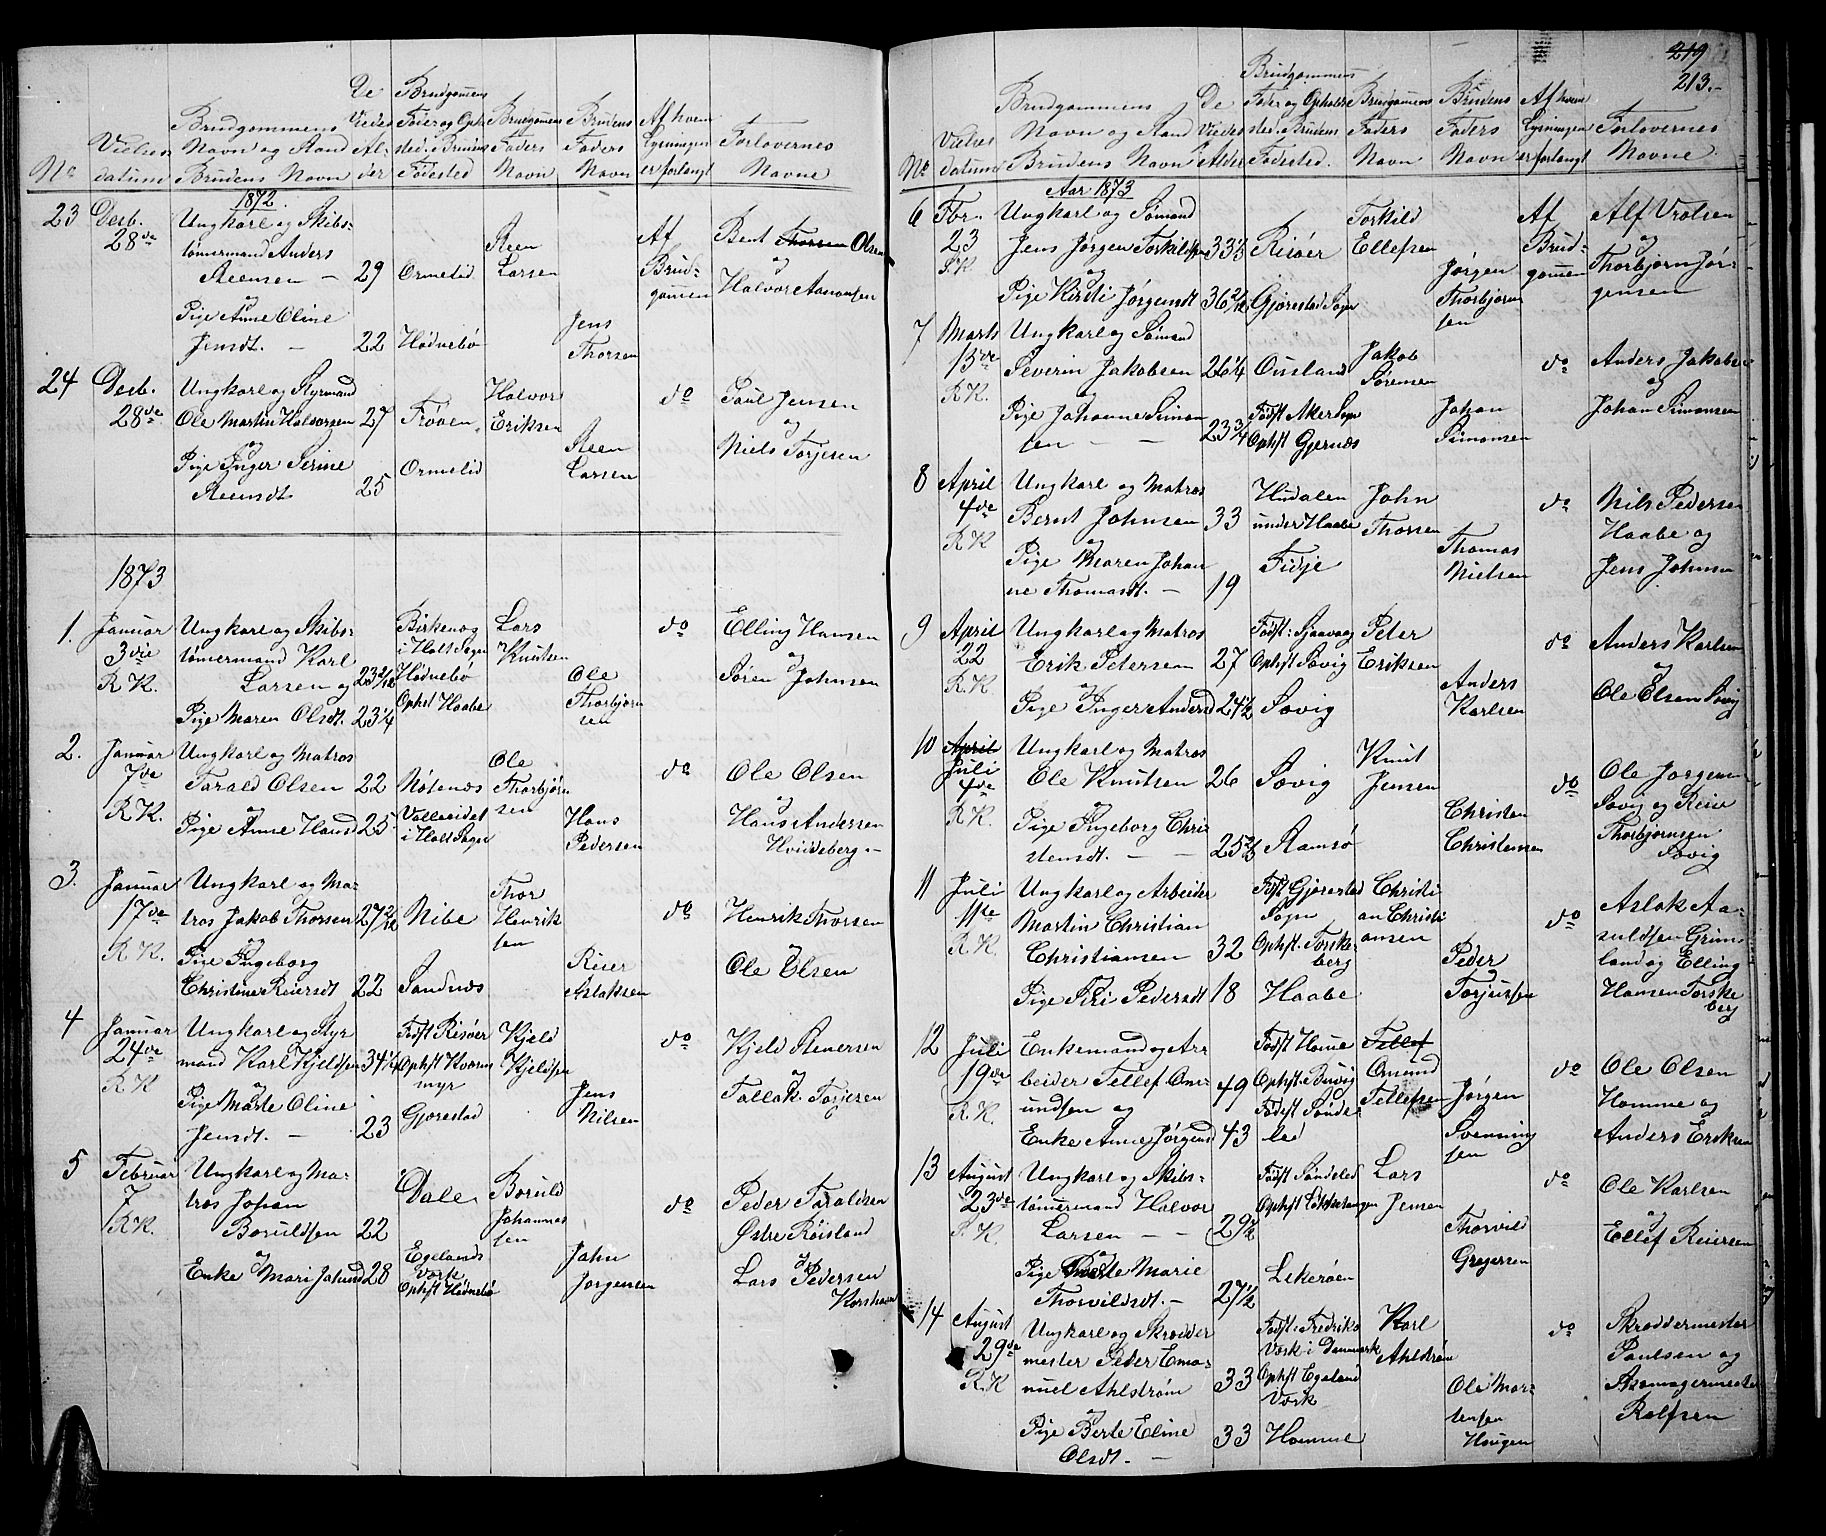 219
213.
No
Vielses
datum
Brudgommens
Navn og Stand
Brudens Navn
De
Viedes
Al-
der
Brudgommens
Føde og Oph
sted. Brudens
Fødested
Brudgommens
Faders
Navn
Brudens
Faders
Navn
Af hvem
Lysningen
er forlangt
Forlovernes
Navne
1872.
23 Desb. 28de
Ungkarl og Skibs-
tømmermand Anders
Steensen — 29 Ormelid
Steen
Larsen
Af
Brud-
gomen
Bent Thorsen Olsen
og
Halvor Aanonsen
og
Pige Anne Oline
Jensdt. — 22 Hødnebø
Jens
Thorsen
24 Desb. 28de
Ungkarl og Styrmand
Ole Martin Halvorsen 27 Frøen
Halvor
Eriksen
do
Paul Jensen
og
Niels Torjesen
og
Pige Inger Serine
Steensdt. 25 Ormelid
Steen
Larsen
1873
1. Januar 3die R.K.
Ungkarl og Skibs-
tømermand Karl
Larsen og 23 2/12
Birkenæs
i Holt Sogn
Hødnebø
Lars
Knutsen
do
Elling Hansen
og
Søren Johnsen
Pige Maren Olsdt. 23 1/4
Ophst Haabe
Ole
Thorbjørn
sen
2. Januar 7de R.K.
Ungkarl og Matros
Tarald Olsen 22 Røtenæs
Ole
Thorbjørn
sen
do
Ole Olsen
og
Hans Andersen
Hvideberg.-
og
Pige Anne Hansd 25
i Holt Sogn
Hans
Pedersen
3. Januar 17de R.K.
Ungkarl og Ma-
tros Jakob Thorsen 27 2/12 Nibe
Thor
Henrik
sen
do
Henrik Thorsen
og
Ole Olsen
og
Pige Ingeborg
Christine Reiersdt 22 Sandnæs
Reier
Aslaksen
4 Januar 24de R.K
Ungkarl og Styr
mand Karl Kjeldsen 34 1/4
Født Risøer
Ophst Kværn
myr
Kjeld
Kjeldsen
do
Kjeld Stenersen
og
Tallak Torjesen
og
Pige Marte Oline
Jensdt. — 23 Gjerestad
Jens
Nilsen
5 Februar 7 R.K.
Ungkarl og Ma-
tros Johan
Boruldsen 22 Dale
Boruld
Johannes
sen
do
Peder Taraldsen
Østre Røisland
og
Lars Pedersen
Korshavn
og
Enke Mari Jahnsd 28
Egelands
Værk
Ophst Hødnebø
Jahn
Jørgensen
No
Vielses
datum
Brudgommens
Navn og Stand
Brudens Navn
De
Viedes
Alder
Brudgommens
Føde og Opholds
sted. Brudens
Fødested.
Brudgommens
Faders
Navn
Brudens
Faders
Navn
Af hvem
Lysningen
er forlangt
Forlovernes
Navne
Aar 1873
6 Fbr. 23 R.K
Ungkarl og Sømand
Jens Jørgen Torkildsen 33 1/3 Risøer
Torkild
Ellefsen
Af
Brud-
gomen
Alf Vrolsen
og
Thorbjørn Jør-
gensen
og
Pige Kirsti Jørgensdt 36 2/12 Gjerestad Sogn
Jørgen
Thorbjørn
sen
7 Marts 15de R.K.
Ungkarl og Sømand
Severin Jakobsen 26 1/4 Ousland
Jakob
Sørensen
do
Anders Jakobsen
og
Johan Simonsen
og
Pige Johanne Simon
sen — — 23 3/4
Født Aker Sogn
Ophst Gjernæs
Johan
Simonsen
8 April 4de R.K
Ungkarl og Matros
Bernt Johnsen 33
Hudalen
under Haabe
John
Thorsen
do
Nils Pedersen
Haabe og
Jens Johnsen
og
Pige Maren Johan
ne Thomasdt. — 19 Fidje
Thomas
Nielsen
9 April 22 R.K
Ungkarl og Matros
Erik Petersen 27
Født: Sjaavaag
Ophst Søvig
Peter
Eriksen
do
Anders Karlsen
og
Ole Olsen Søvig
og
Pige Inger Andersd 24 1/2 Søvig
Anders
Karlsen
10 April Juli 4de R.K.
Ungkarl og Matros
Ole Knutsen 26 Søvig
Knut
Jensen
do
Ole Jørgensen
Søvig og Reier
Thorbjørnsen
Søvig
og
Pige Ingeborg Chri
stensdt. — — Ramsø
Christen
Christensen
11 Juli 11te R.K.
Ungkarl og Arbeider
Martin Christian
Christiansen 32
Født Gjerestad
Sogn
Ophst. Torske-
berg
Christi
an Christi
ansen
do
Aslak Aa-
suldsen Grim-
land og Elling
Hansen Torske
berg
og
Pige Siri Pedersdt 18 Haabe
Peder
Torjussen
12 Juli 19de R.K.
Enkemand og Ar-
beider Tellef Om-
undsen og 49
Født Home
Ophst: Buvig
Tellef
Omund
Tellefsen
do
Ole Olsen
Homme og
Anders Eriksen
Enke Anne Jørgensd 43
Fødest Sønde
led
Jørgen
Svenning
sen
13 August 23de R.K.
Ungkarl og Skibs-
tømermand Halvor
Larsen — — 29 1/2
Født Søndeled
Lars
Jensen
do
Ole Karlsen
og
Ellef Reiersen
og
Pige Berte Marie
Thorvildsdt. — 27 1/2 Lekerøen
Thorvild
Gregersen
14 August 29de R.K
Ungkarl og Skrædder
mester Peder Ema-
nuel Ahlstrøm 33
Født: Fredriks
Værk i Danmark
Ophst Egeland
Værk
Karl
Ahlstrøm
do
Skræddermester
Paulsen og
Skomagermester
Rolfsen
og
Pige Berte Eline
Olsdt. — 33 Homme
Ole Mor-
tensen
Haugen